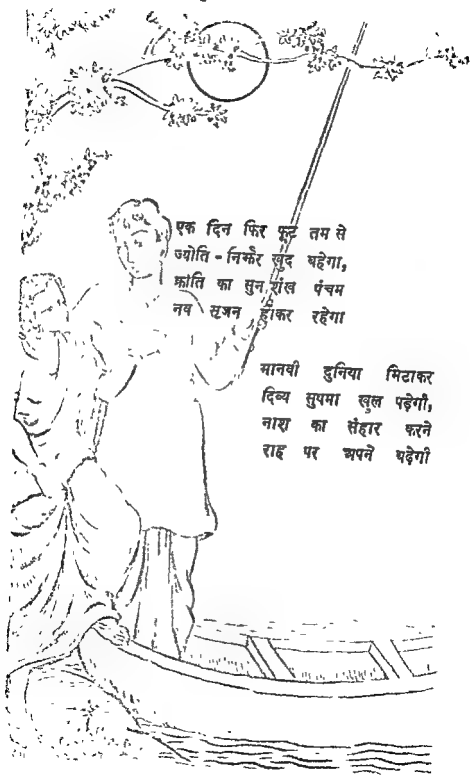 एक दिन फिर फूट तम से
ज्योति - निर्झर खुद बहेगा,
क्रांति का सुन शंख पंचम
नव सृजन होकर रहेगा
मानवी दुनिया मिटाकर
दिव्य सुषमा खुल पड़ेगी,
नाश का संहार करने
राह पर अपने बढ़ेगी